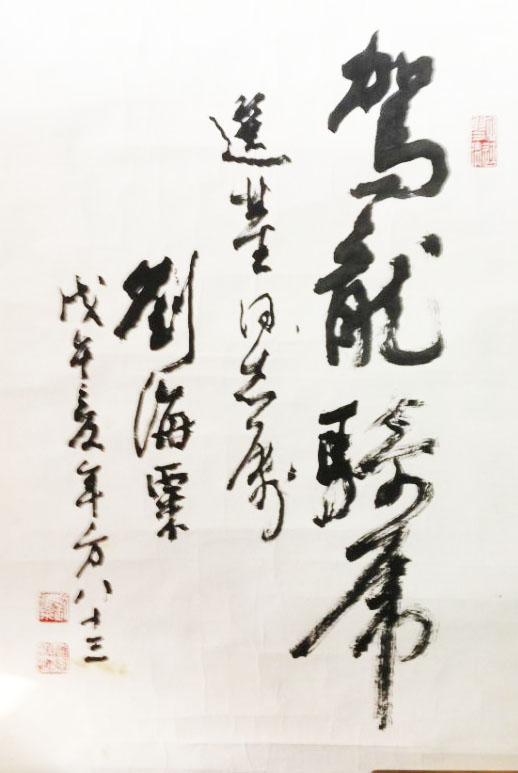 駕龍騎虎
選基同志属
劉海粟
戊午夏年方八十三